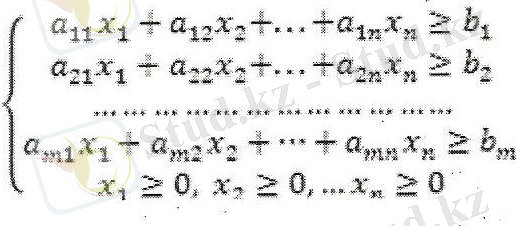 a₁₁x₁ + a₁₂x₂+...+a₁ₙxₙ ≥ b₁
a₂₁x₁ + a₂₂x₂+...+a₂ₙxₙ ≥ b₂
... ... ... ... ... ... ... ... ... ... ... ...
aₘ₁x₁ + aₘ₂x₂ + ⋯ + aₘₙxₙ ≥ bₘ
x₁ ≥ 0, x₂ ≥ 0, ... xₙ ≥ 0
Stud.kz - Stud.kz
stud.kz